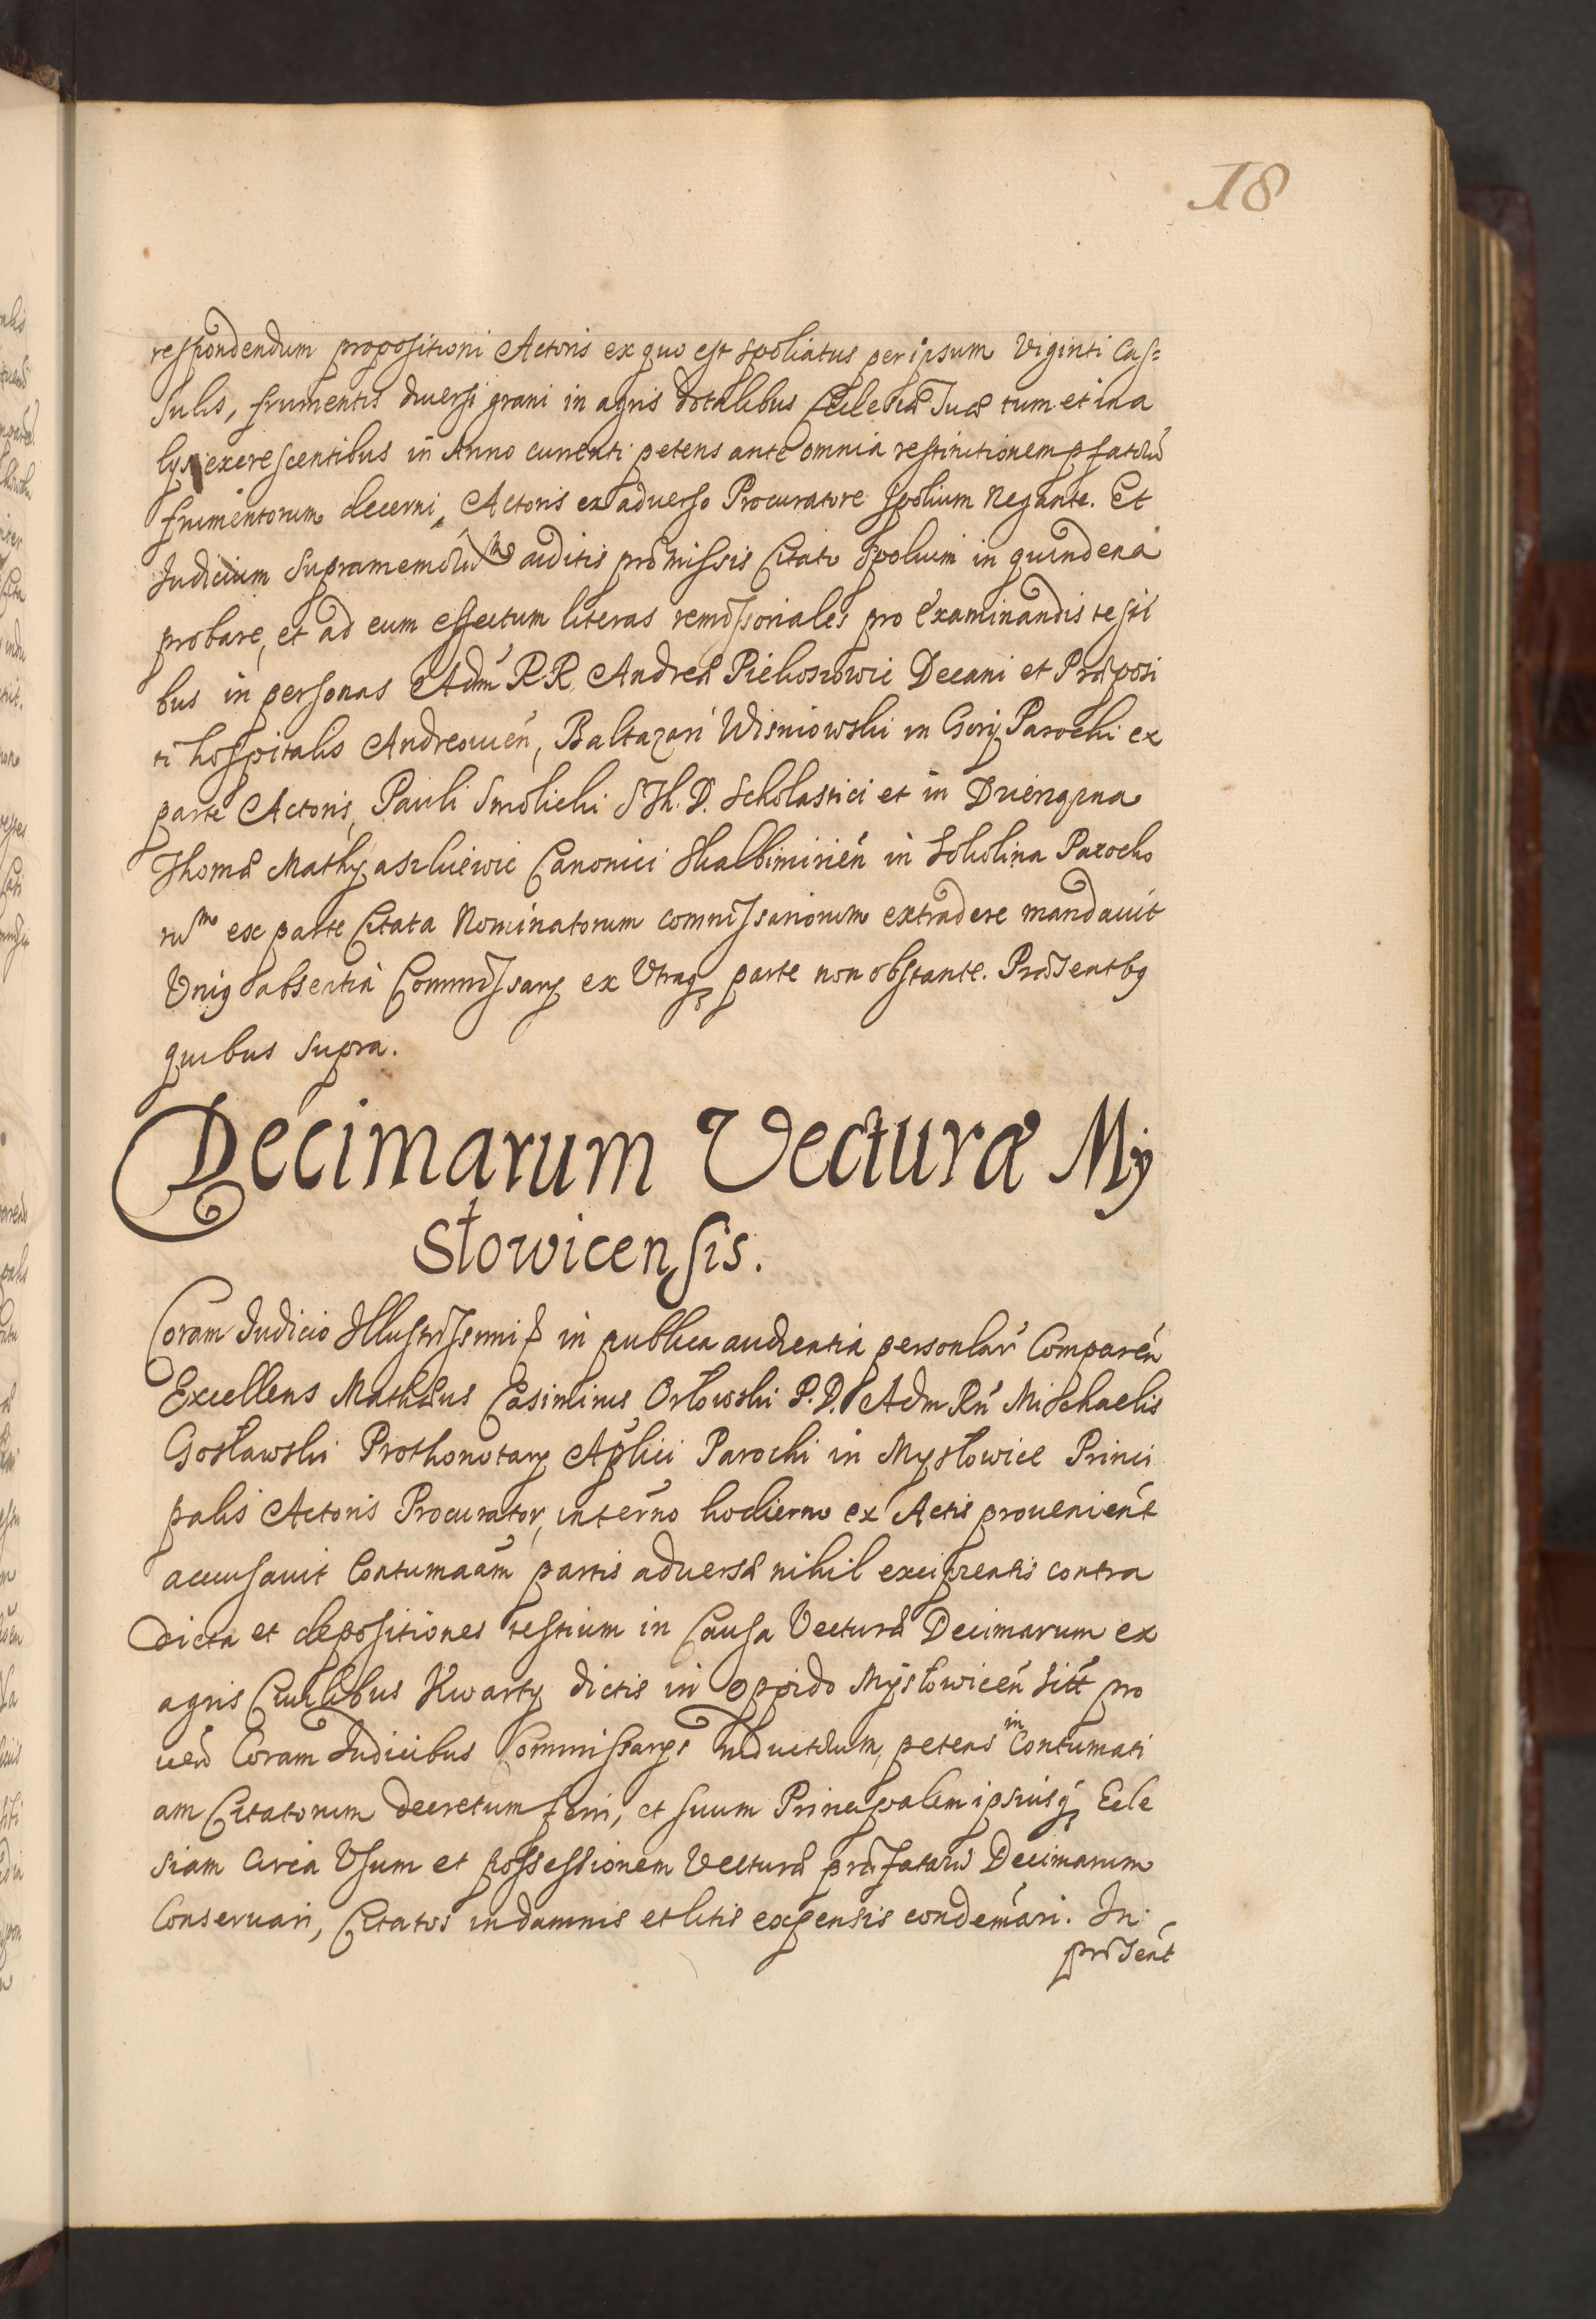 18
respondendum propositioni Actoris ex quo est spoliatus per ipsum Viginti Cas=
sulis, frumentis diuersi grani in agris dotalibus Ecclesiæ suæ tum et in a
lys excrescentibus in Anno currenti petens ante omnia restitutionem pfatorū
frumentorum decerni, Actoris ex aduerso Procuratore spolium Negante. Et
Judicium auditis præmissis Citato spolium in quindena
probare, et ad eum effectum literas remissoriales pro Examinandis testi
bus in personas Adm R.R. Andreæ Piekoszowic Decani et Præposi
ti hospitalis Andreouien, Baltazari Wisniowski in Gory Parochi ex
parte Actoris, Pauli Smolicki S.Th.D. Scholastici et in
Thomæ Mathyaszkiewic Canonici Skalbimirien in Sokolina Parocho
rū ex parte Citata Nominatorum commissariorum extradere mandauit
Vniq absentia Commissary ex Vtraq parte non obstante. Præsentbq
quibus supra.
Decimarum Vecturæ My
słowicensis.
Coram Judicio Illustrissimi in publica audientia personlar Comparen
Excellens Mathæus Casimirus Orłowski P.D. Adm Rn Mischaelis
Gosławski Prothonotary Aplici Parochi in Mysłowice Princi
palis Actoris Procurator, in terno hodierno ex Actis prouenient
accusauit Contumaam partis aduersæ nihil excipientis contra
dicta et depositiones testium in Causa Vecturæ Decimarum ex
agris Ciuilibus Kwarty dictis in oppido Mysłowicen sitt pro
uen Coram Judicibus Commissarys inductorum, petens in Contumati
am Citatorum decretum ferri, et suum Principalem ipsiusq Eccle
siam circa Vsum et possessionem Vecturæ præfatarū Decimarum
Conseruari, Citatos in damnis et litis expensis condemari. In
præsent